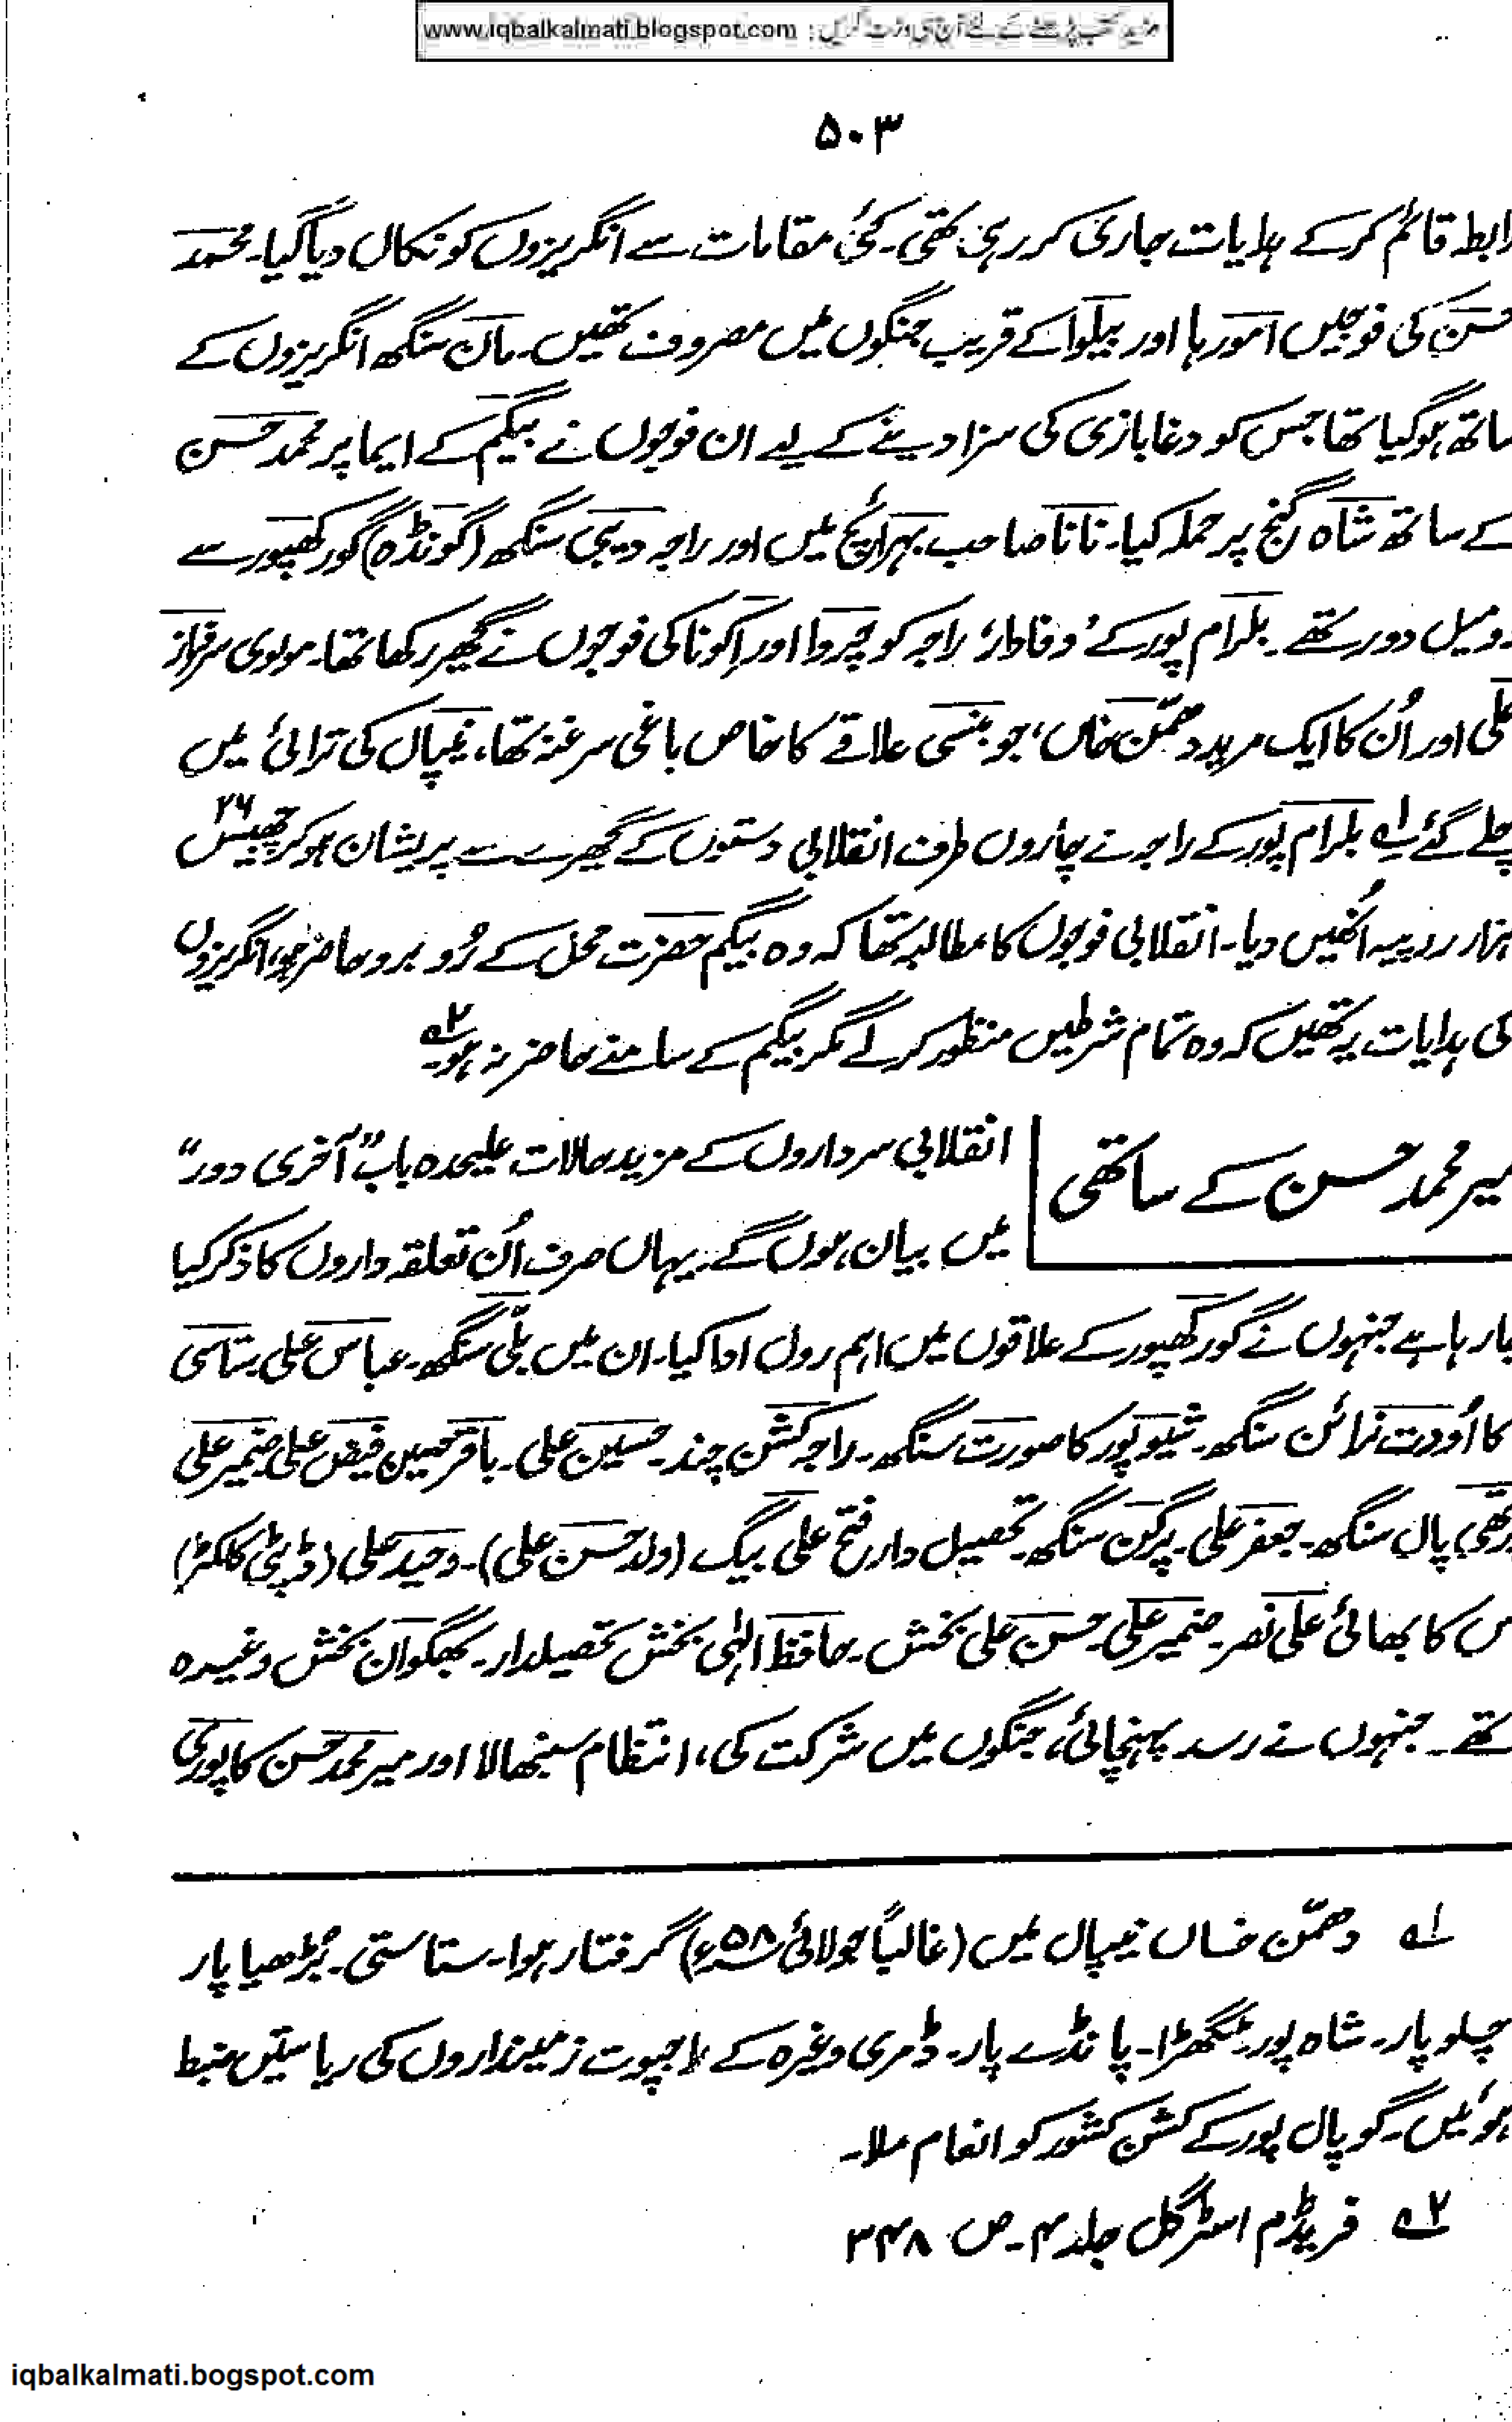 مزید کتب پڑھنے کے لئے آج ہی وزٹ کریں : www.iqbalkalmati.blogspot.com
۵۰۳
رابطہ قائم کرکے ہدایات جاری کر رہی تھی۔ کئی مقامات سے انگریزوں کو نکال دیا گیا۔ محمد
حسن کی فوجیں امورہا اور بیلوا کے قریب جنگوں میں مصروف تھیں۔ مان سنگھ انگریزوں کے
ساتھ ہو گیا تھا جس کو دغا بازی کی سزا دینے کے لیے ان فوجوں نے بیگم کے ایما پر محمد حسن
کے ساتھ شاہ گنج پر حملہ کیا۔ نانا صاحب بہرائچ میں اور راجہ دیبی سنگھ (گونڈہ) گورکھپور سے
دو میل دور تھے۔ بلرام پور کے 'وفادار' راجہ کو چروا اور اکونا کی فوجوں نے گھیر رکھا تھا۔ مولوی سرفراز
علی اور اُن کا ایک مرید دھمّن خاں، جو بنسی علاقے کا خاص باغی سرغنہ تھا، نیپال کی ترائی میں
چلے گئے لے۱ بلرام پور کے راجہ نے چاروں طرف انقلابی دستوں کے گھیرے سے پریشان ہو کر چھبیس ۲۶
ہزار روپیہ اُنھیں دیا۔ انقلابی فوجوں کا مطالبہ تھا کہ وہ بیگم حضرت محل کے رُو برو حاضر ہو، انگریزوں
کی ہدایات یہ تھیں کہ وہ تمام شرطیں منظور کر لے مگر بیگم کے سامنے حاضر نہ ہو۔ ۲ے
میر محمد حسن کے ساتھی
انقلابی سرداروں کے مزید حالات علیحدہ باب "آخری دور"
میں بیان ہوں گے۔ یہاں صرف اُن تعلقہ داروں کا ذکر کیا
جا رہا ہے جنہوں نے گورکھپور کے علاقوں میں اہم رول ادا کیا۔ ان میں بلّی سنگھ۔ عباس علی۔ ستاسی
کا اُودت نرائن سنگھ۔ شیو پور کا صورت سنگھ۔ راجہ کشن چند۔ حسین علی۔ باقر حسین۔ فیض علی۔ ضمیر علی
پال سنگھ۔ جعفر علی۔ پرگن سنگھ۔ تحصیل دار فتح علی بیگ (ولد حسن علی)۔ وحید علی (ڈپٹی کلکٹر)
اس کا بھائی علی نصر۔ ضمیر علی۔ حسن علی بخش۔ حافظ الٰہی بخش تحصیلدار۔ بھگوان بخش وغیرہ
تھے۔ جنہوں نے رسد پہنچائی، جنگوں میں شرکت کی، انتظام سنبھالا اور میر محمد حسن کا پوری
۱ے دھمّن خاں نیپال میں (غالباً جولائی ۵۸ء) گرفتار ہوا۔ ستاستی۔ بڑھیا پار
چلو پار۔ شاہ پور۔ پانڈے پار۔ ڈمری وغیرہ کے راجپوت زمینداروں کی ریاستیں ضبط
ہوئیں۔ گوپال پور کے کشن کشور کو انعام ملا۔
۲ے فریڈم اسٹرگل جلد ۴۔ ص ۳۴۸
iqbalkalmati.bogspot.com